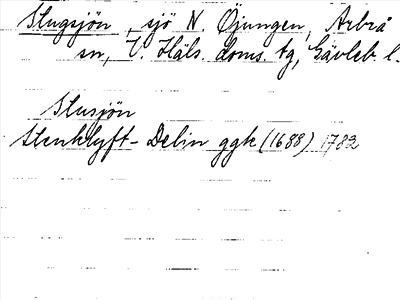 Slugsjön, sjö N. Öjungen, Arbrå
sn, V. Häls. doms. tg, Gävleb. l.
Slusjön
Stenklyft-Delin ggk (1688) 1782